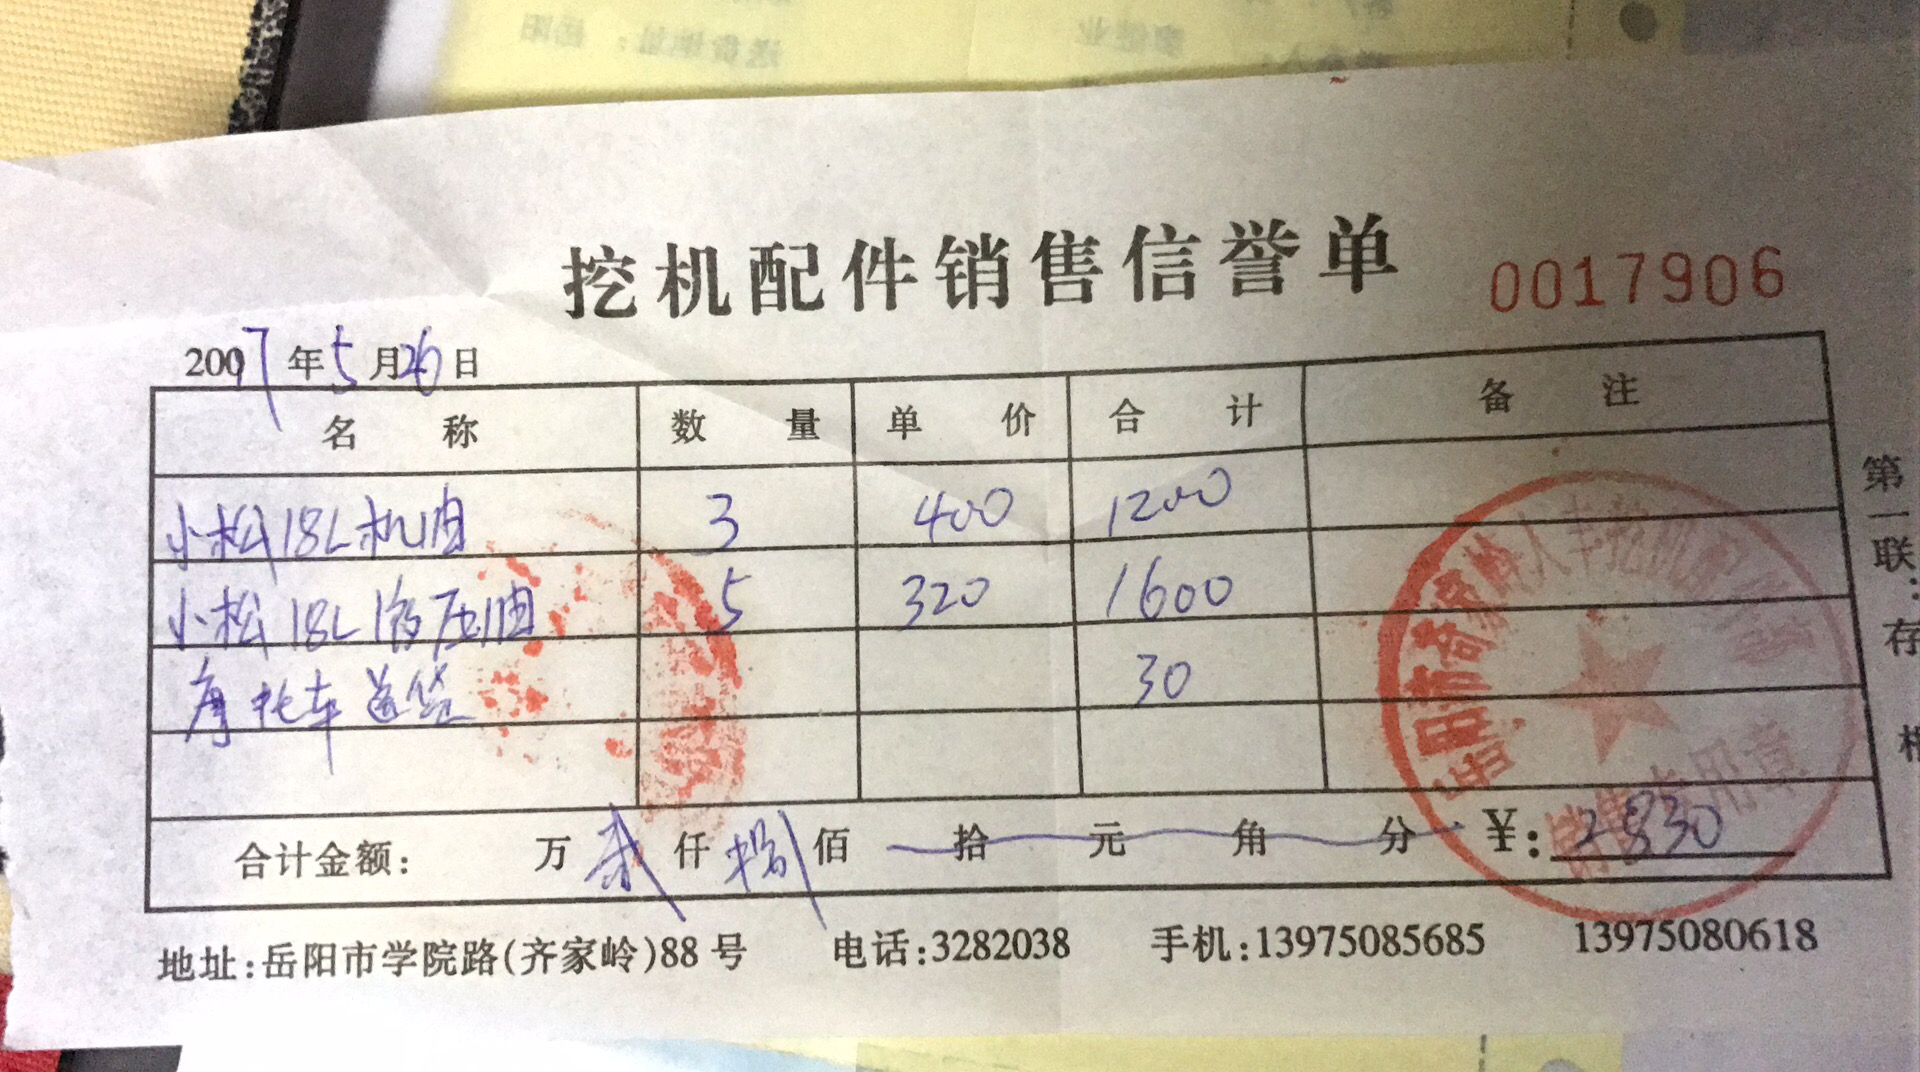 挖机配件销售信誉单
0017906
2007年5月26日
名称 数量 单价 合计 备注
小松18L机油 3 400 1200
小松18L液压油 5 320 1600
摩托车送货 30
合计金额: 万 仟 佰 拾 元 角 分 ¥:2830
地址:岳阳市学院路(齐家岭)88号 电话:3282038 手机:13975085685 13975080618
第一联:存根
销售专用章